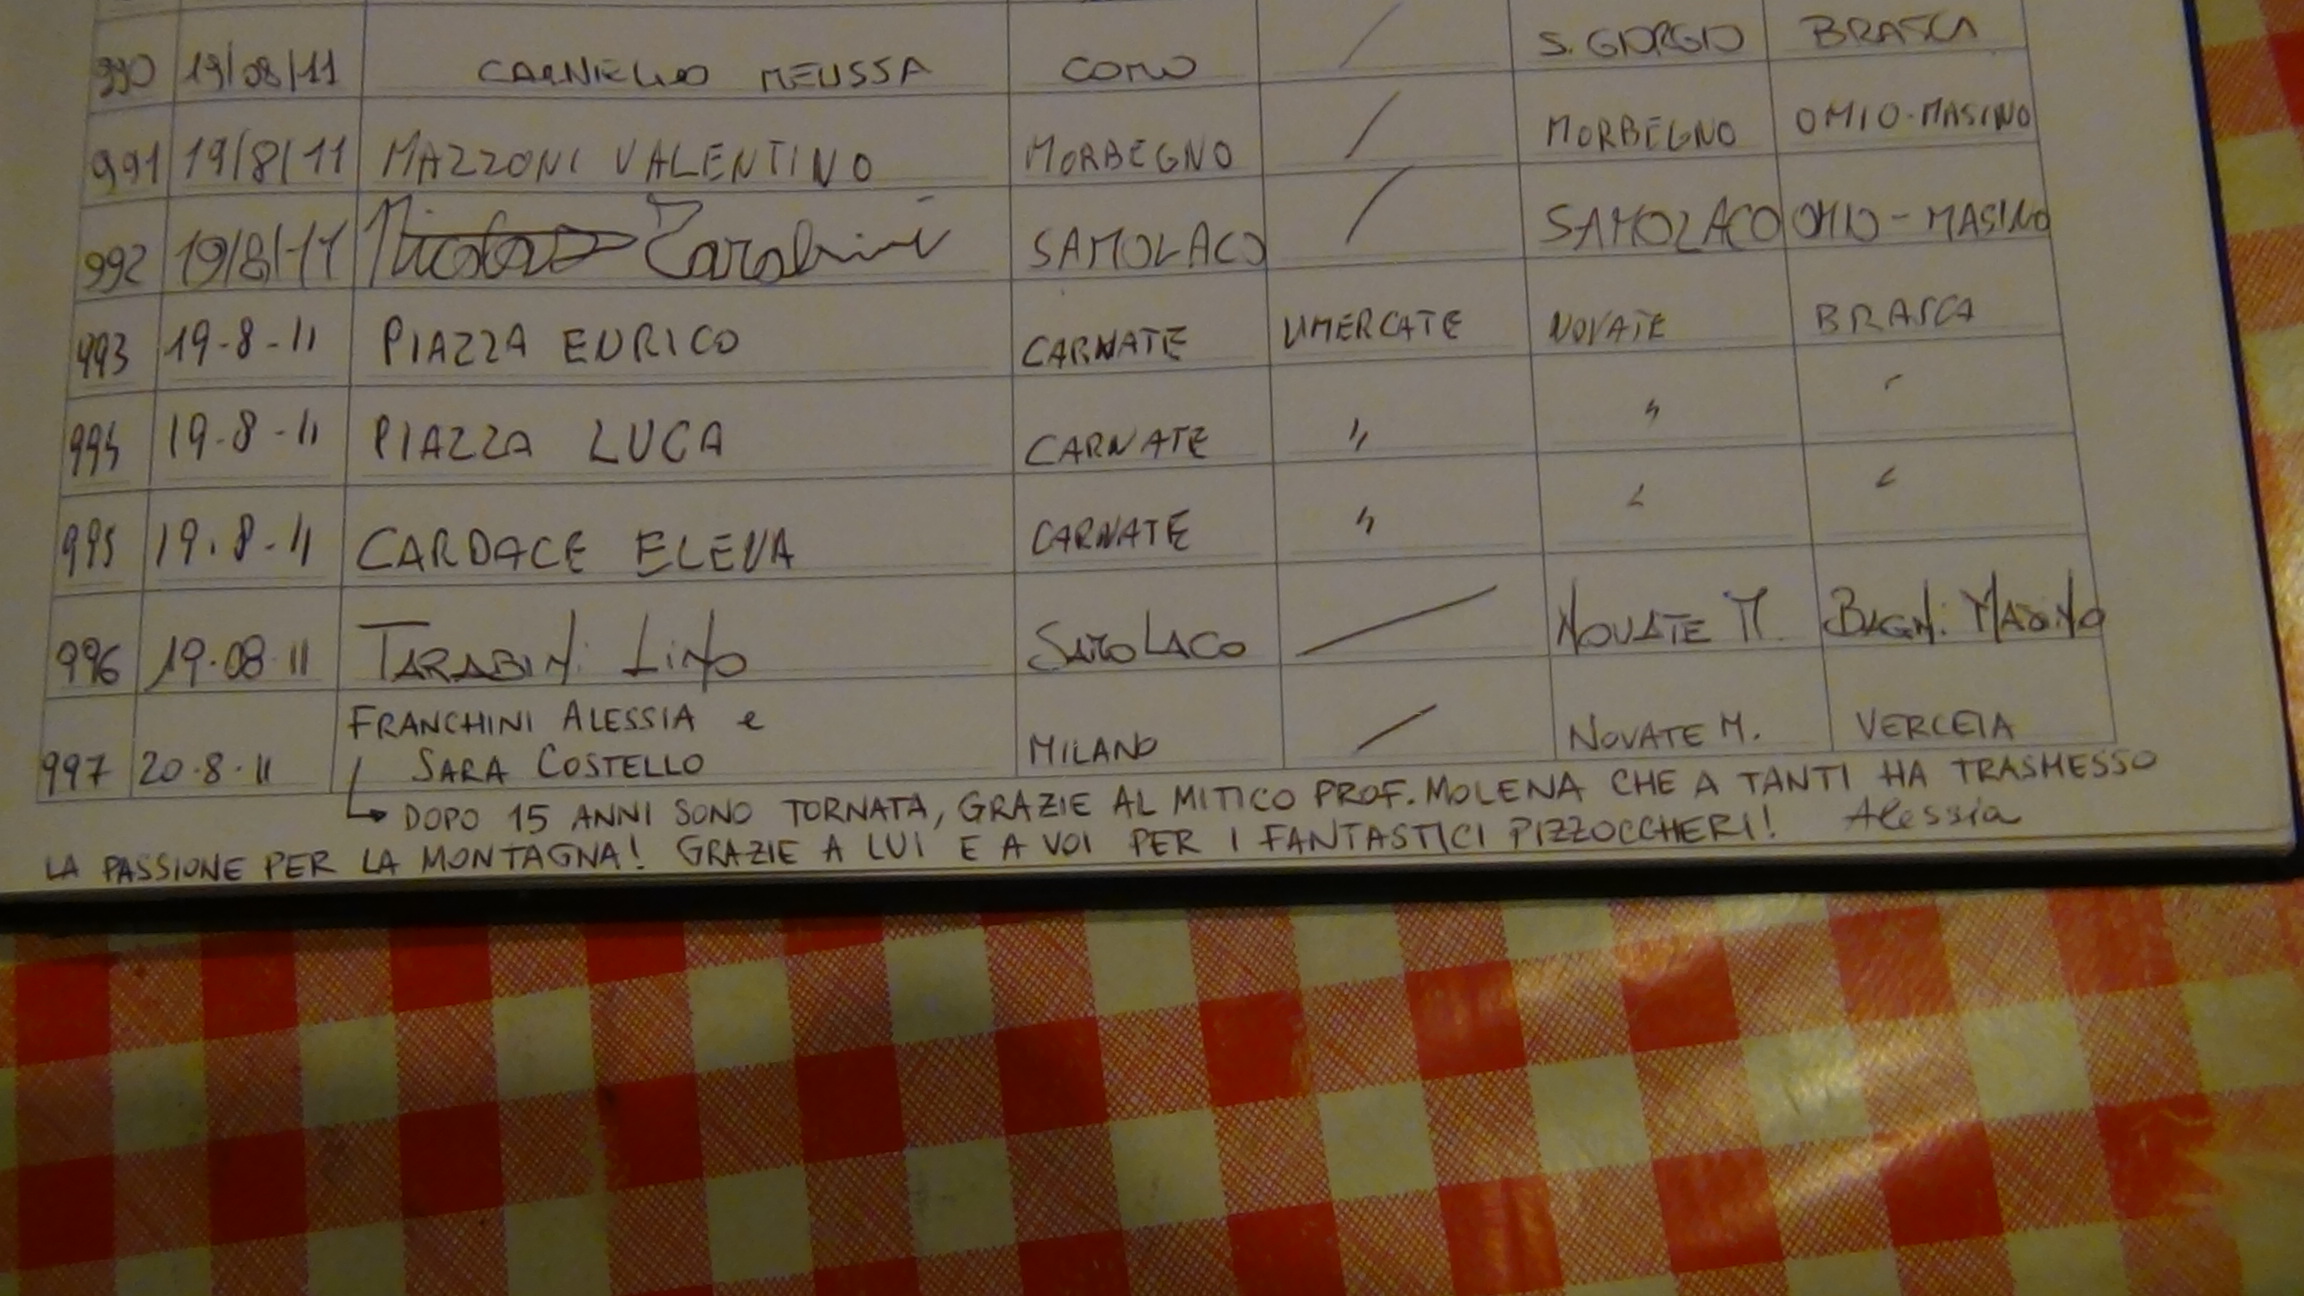 990 19/08/11 CARNIELLO MELISSA COMO / S. GIORGIO BRASCA
991 19/8/11 MAZZONI VALENTINO MORBEGNO / MORBEGNO OMIO-MASINO
992 19/8/11 Tarabini SAMOLACO / SAMOLACO OMIO-MASINO
993 19-8-11 PIAZZA ENRICO CARNATE VIMERCATE NOVATE BRASCA
994 19-8-11 PIAZZA LUCA CARNATE " " "
995 19.8-11 CARDACE ELENA CARNATE " " "
996 19.08.11 TARABINI LINO SAMOLACO / NOVATE M. BAGNI MASINO
FRANCHINI ALESSIA e
997 20.8.11 SARA COSTELLO MILANO / NOVATE M. VERCEIA
DOPO 15 ANNI SONO TORNATA, GRAZIE AL MITICO PROF. MOLENA CHE A TANTI HA TRASMESSO
LA PASSIONE PER LA MONTAGNA! GRAZIE A LUI E A VOI PER I FANTASTICI PIZZOCCHERI! Alessia